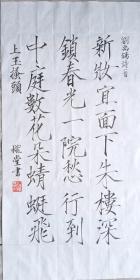 劉禹錫詩一首
新妝宜面下朱樓深
鎖春光一院愁行到
中庭數花朵蜻蜓飛
上玉搔頭
堂書